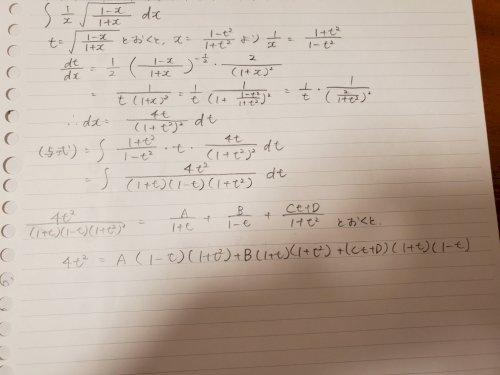 ∫ 1/x √((1-x)/(1+x)) dx
t = √((1-x)/(1+x)) とおくと, x = (1-t²)/(1+t²) より 1/x = (1+t²)/(1-t²)
dt/dx = 1/2 ((1-x)/(1+x))^(-1/2) · 2/(1+x)²
= 1/(t(1+x)²) = 1/t · 1/(1+(1-t²)/(1+t²))² = 1/t · 1/(2/(1+t²))²
∴ dx = 4t/(1+t²)² dt
(与式) = ∫ (1+t²)/(1-t²) · t · 4t/(1+t²)² dt
= ∫ 4t²/((1+t)(1-t)(1+t²)) dt
4t²/((1+t)(1-t)(1+t²)) = A/(1+t) + B/(1-t) + (Ct+D)/(1+t²) とおくと.
4t² = A(1-t)(1+t²)+B(1+t)(1+t²)+(Ct+D)(1+t)(1-t)